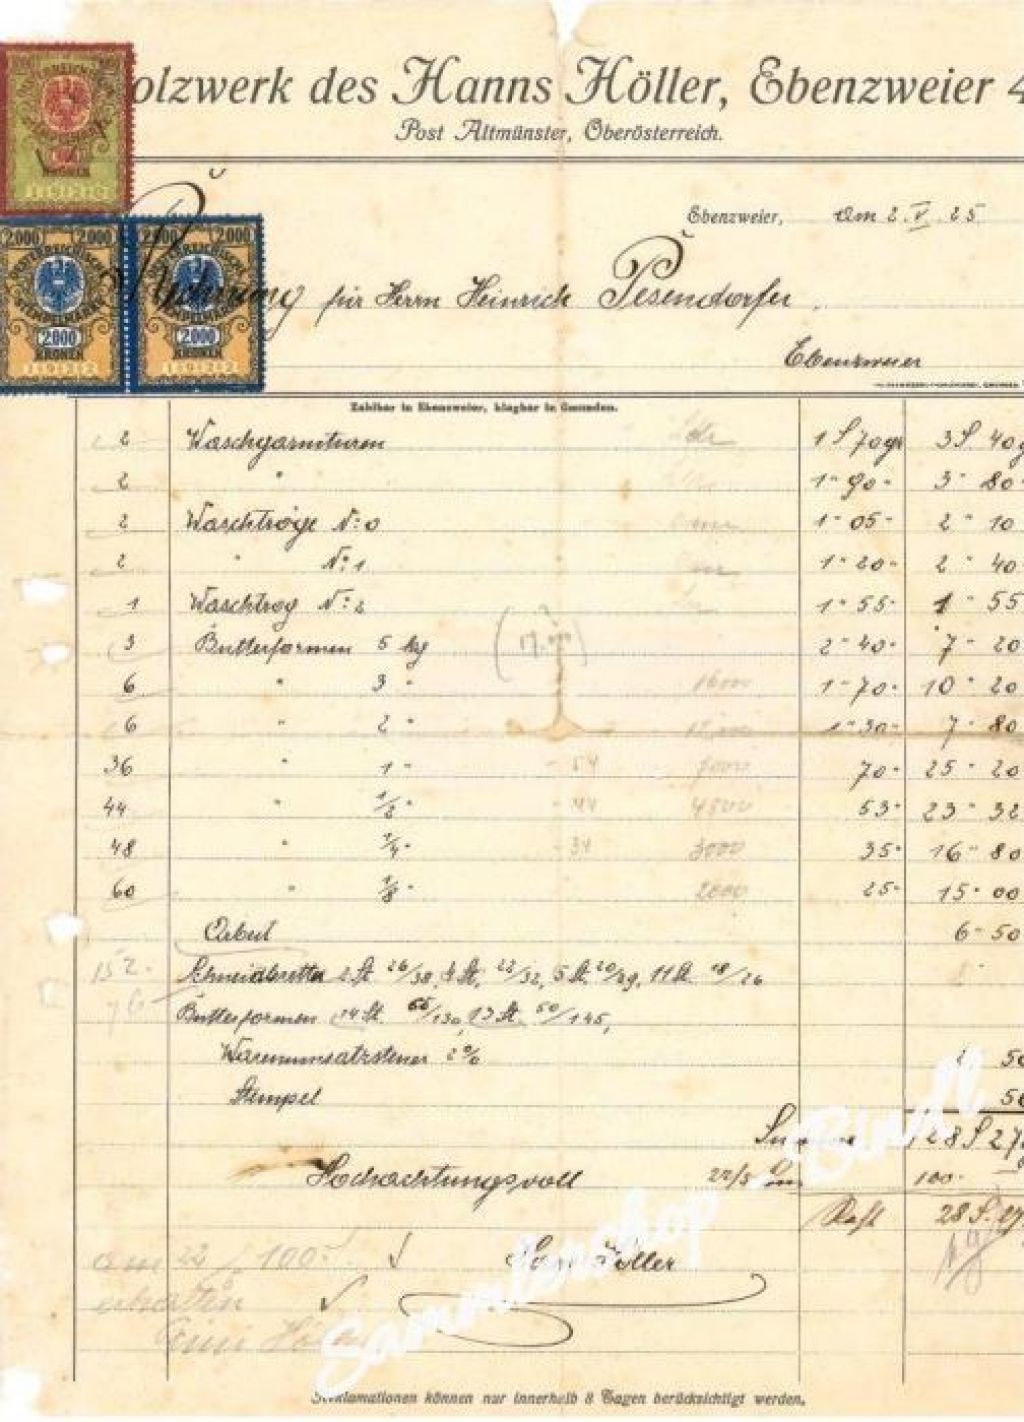 olzwerk des Hanns Höller, Ebenzweier 4
Post Altmünster, Oberösterreich.
Ebenzweier, am 2. V. 25
Rechnung für Herrn Heinrich Pesendorfer
Ebenzweier
2000 2000 2000 2000
ÖSTERREICHISCHE ÖSTERREICHISCHE
STEMPELMARKE STEMPELMARKE
2000 2000
KRONEN KRONEN
Zahlbar in Ebenzweier, klagbar in Gmunden.
2 Waschgarnituren 1 S 70 gr 3 S. 40 g
2 " 1 " 90 " 3 " 80
2 Waschtröge N: 0 1 " 05 " 2 " 10
2 " N: 1 1 " 20 " 2 " 40
1 Waschtrog N: 2 1 " 55 " 1 " 55
3 Butterformen 5 kg 2 " 40 " 7 " 20
6 " 3 " 1 " 70 " 10 " 20
6 " 2 " 1 " 30 " 7 " 80
36 " 1 " 7000 70 " 25 " 20
44 " 1/2 " 44 4800 53 " 23 " 32
48 " 1/4 " 34 3000 35 " 16 " 80
60 " 1/8 " 2000 25 " 15 " 00
Arbeit 6 " 50
152 Schneidbretter 2 St. 26/38, 4 St. 22/32, 5 St. 20/29, 11 St. 18/26
76 Butterformen 14 St. 65/130, 13 St. 50/145,
Warenumsatzsteuer 2% 2 50
Stempel 50
Summe 128 S 27 g
Hochachtungsvoll 22/5 100
Rest 28 S. 27
am 22 / 100 Hans Höller
erhalten
Sammlershop Bindl
Reklamationen können nur innerhalb 8 Tagen berücksichtigt werden.